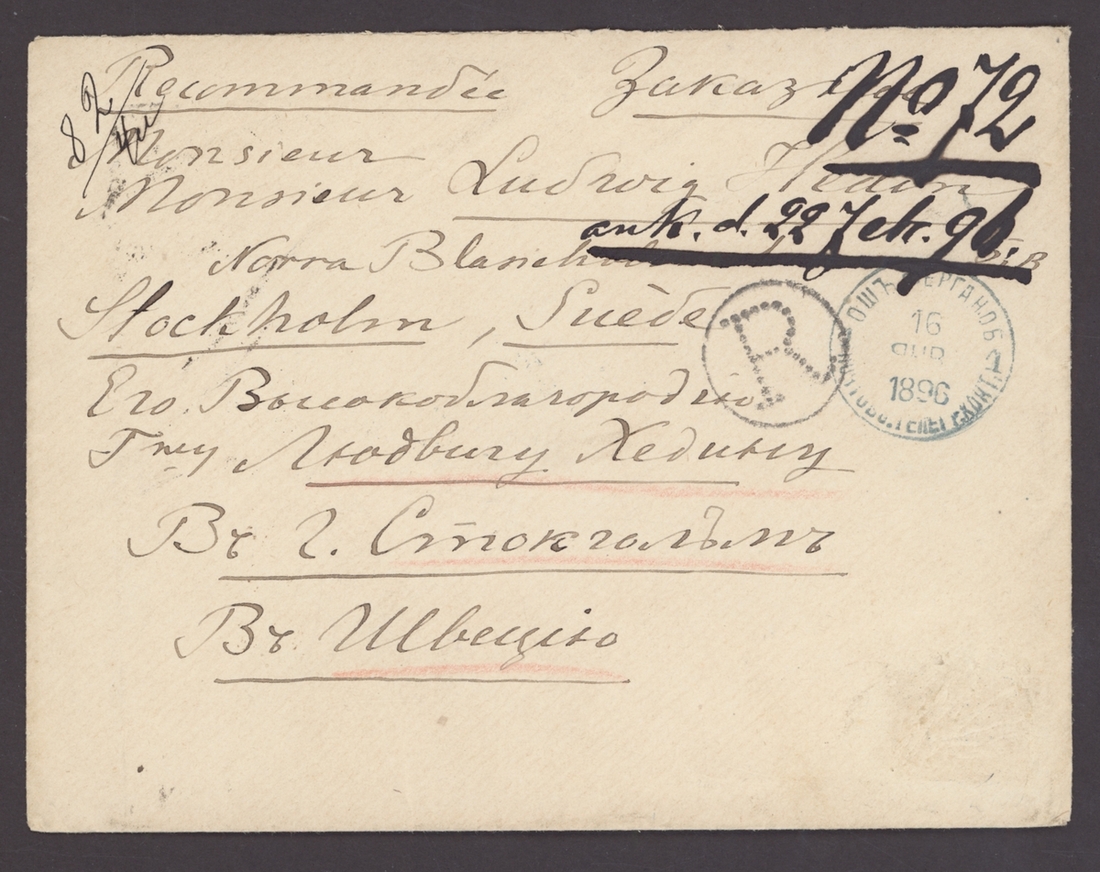 Recommandée Заказное
No 72
8 2/
Monsieur
Monsieur Ludwig Hedin
ank. d. 22 Feb. 96.
Norra
Stockholm, Suède
R
ОШЪ ФЕРГАНОБ
16
ЯНВ
1896
Его Высокоблагородію
Гну Людвигу Хедину
Въ г. Стокгольмъ
Въ Швецію